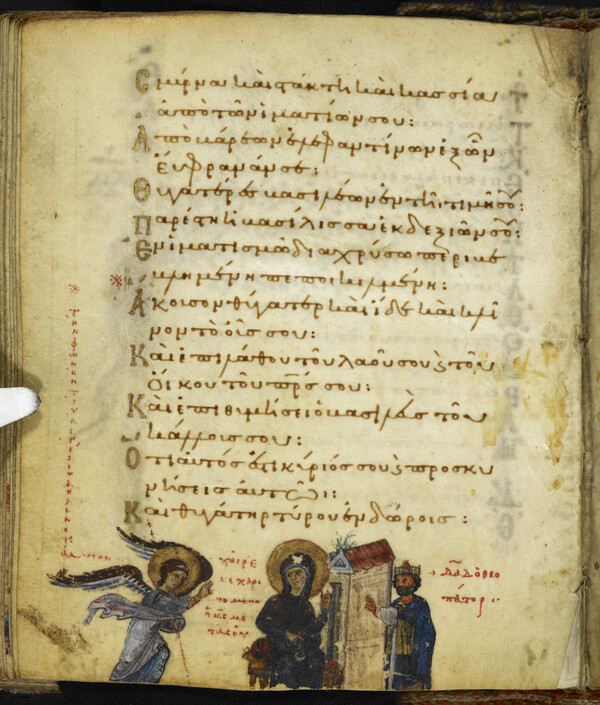 Σμύρνα καὶ στακτὴ καὶ κασσία
ἀπὸ τῶν ἱματίων σου:
Ἀπὸ βάρεων ἐλεφαντίνων ἐξ ὧν
εὔφρανάν σε:
Θυγατέρες βασιλέων ἐν τῇ τιμῇ σου:
Παρέστη ἡ βασίλισσα ἐκ δεξιῶν σου:
Ἐν ἱματισμῷ διαχρύσῳ περιβε
βλημένη πεποικιλμένη:
Ἄκουσον θύγατερ καὶ ἴδε καὶ κλῖ
νον τὸ οὖς σου:
Καὶ ἐπιλάθου τοῦ λαοῦ σου καὶ τοῦ
οἴκου τοῦ πρς σου:
Καὶ ἐπιθυμήσει ὁ βασιλεὺς τοῦ
κάλλους σου:
Ὅτι αὐτός ἐστι κύριός σου καὶ προσκυ
νήσεις αὐτῷ:
Καὶ θυγάτηρ Τύρου ἐν δώροις:
χαῖρε
κεχαρι
τωμένη
ὁ κς με
τὰ σοῦ
Δαδ ὁ θεο
πάτωρ